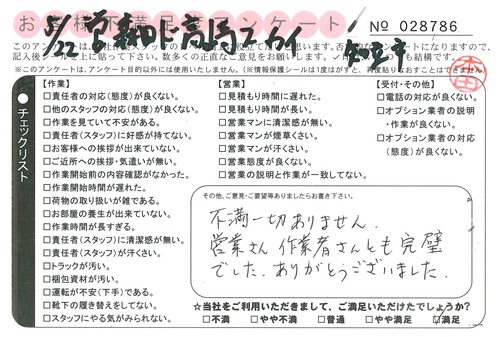 お客様不満足度アンケート
№ 028786
5/22
知立市
※このアンケートは、アンケート目的以外には使用いたしません。(※情報保護シールは1度はがすと、再度貼りなおすことはできません)
チェックリスト
【作業】
□責任者の対応(態度)が良くない。
□他のスタッフの対応(態度)が良くない。
□作業を見ていて不安がある。
□責任者(スタッフ)に好感が持てない。
□お客様への挨拶が出来ていない。
□ご近所への挨拶・気遣いが無い。
□作業開始前の内容確認がなかった。
□作業開始時間が遅れた。
□荷物の取り扱いが雑である。
□お部屋の養生が出来ていない。
□作業時間が長すぎる。
□責任者(スタッフ)に清潔感が無い。
□責任者(スタッフ)が汗くさい。
□トラックが汚い。
□梱包資材が汚い。
□運転が不安(下手)である。
□靴下の履き替えをしてない。
□スタッフにやる気がみられない。
【営業】
□見積もり時間に遅れた。
□見積もり時間が長い。
□営業マンに清潔感が無い。
□営業マンが煙草くさい。
□営業マンが汗くさい。
□営業態度が良くない。
□営業の説明と作業が一致してない。
【受付・その他】
□電話の対応が良くない。
□オプション業者の説明
・作業が良くない。
□オプション業者の対応
(態度)が良くない。
その他、ご意見・ご要望等ありましたらお書き下さい。
不満一切ありません。
営業さん 作業者さんとも完璧
でした。ありがとうございました。
☆当社をご利用いただきまして、ご満足いただけたでしょうか?
□不満 □やや不満 □普通 □やや満足 □満足